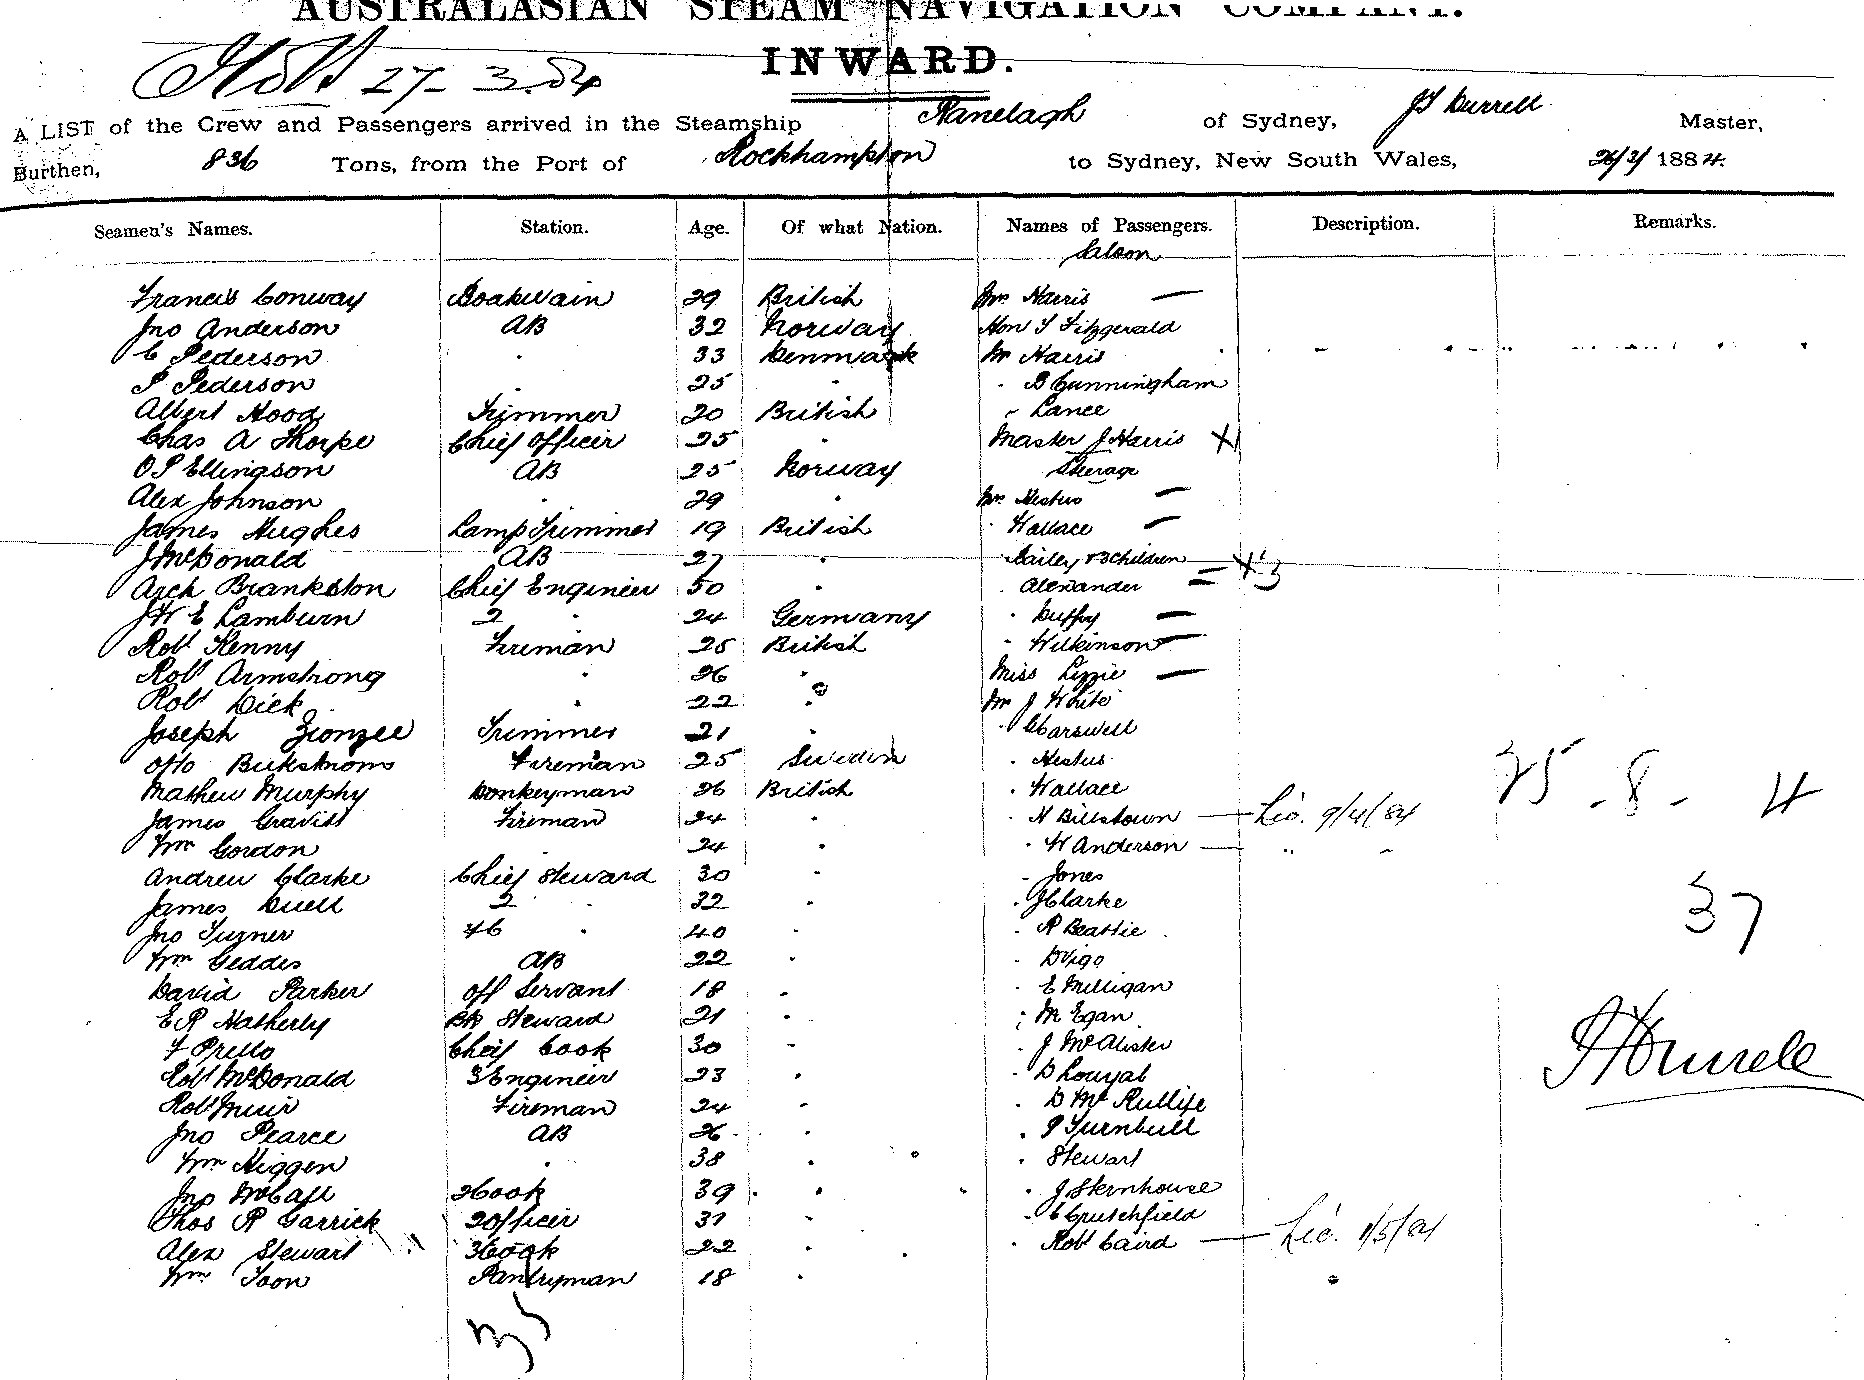 AUSTRALASIAN STEAM NAVIGATION COMPANY.
INWARD.
27-3.84
A LIST of the Crew and Passengers arrived in the Steamship Ranelagh of Sydney, Master,
Burthen, 836 Tons, from the Port of Rockhampton to Sydney, New South Wales, 26/3/ 1884.
Seamen's Names. Station. Age. Of what Nation. Names of Passengers. Description. Remarks.
Saloon
Francis Conway Boatswain 29 British Mrs Harris —
Jno Anderson AB 32 Norway Hon Fitzgerald
C Pederson " 33 Denmark Mr Harris
P Pederson " 25 " " B Cunningham
Albert Hood Trimmer 20 British " Lance
Chas A Thorpe Chief Officer 25 " Master J Harris X
O P Ellingson AB 25 Norway Steerage
Alex Johnson " 29 " Mrs —
James Hughes Lamp Trimmer 19 British " Wallace —
J McDonald AB 27 " Bailey & 3 children X 3
Arch Brankston Chief Engineer 50 " " Alexander =
J W E Lamburn 2 " 24 Germany " Duffy —
Robt Kenny Fireman 25 British " Wilkinson —
Robt Armstrong " 26 " Miss Lizzie —
Robt Dick " 22 " Mr J White
Joseph Trimmer 21 " " Carswell
Otto Fireman 25 Sweden "
Mathew Murphy Donkeyman 26 British " Wallace 25 - 8 - 4
James Gravitt Fireman 24 " " H Billstown — Lic. 9/4/84
Wm Gordon " 24 " " W Anderson — " "
Andrew Clarke Chief Steward 30 " " Jones
James Duell 2 " 32 " " J Clarke 37
Jno Turner " 40 " " R Beattie
Wm Geddes AB 22 " " D Vigo
David Parker Off Servant 18 " " E Milligan
E R Hatherly Steward 21 " " M Egan
F Prello Chief Cook 30 " " J McAlister
Robt McDonald 3 Engineer 23 " " D
Robt Muir Fireman 24 " " D
Jno Pearce AB 26 " " P Turnbull
Wm Higgen " 38 " " Stewart
Jno McCall 2 Cook 39 " " J Stenhouse
Thos R Garrick 2 Officer 31 " " C Crutchfield
Alex Stewart 3 Cook 22 " " Robt Caird — Lic. 1/5/84
Wm Toon Pantryman 18 "
35